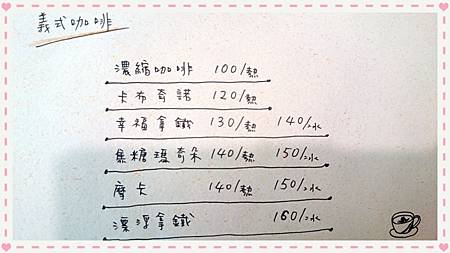 義式咖啡
濃縮咖啡 100/熱
卡布奇諾 120/熱
幸福拿鐵 130/熱 140/冰
焦糖瑪奇朵 140/熱 150/冰
摩卡 140/熱 150/冰
漂浮拿鐵 160/冰